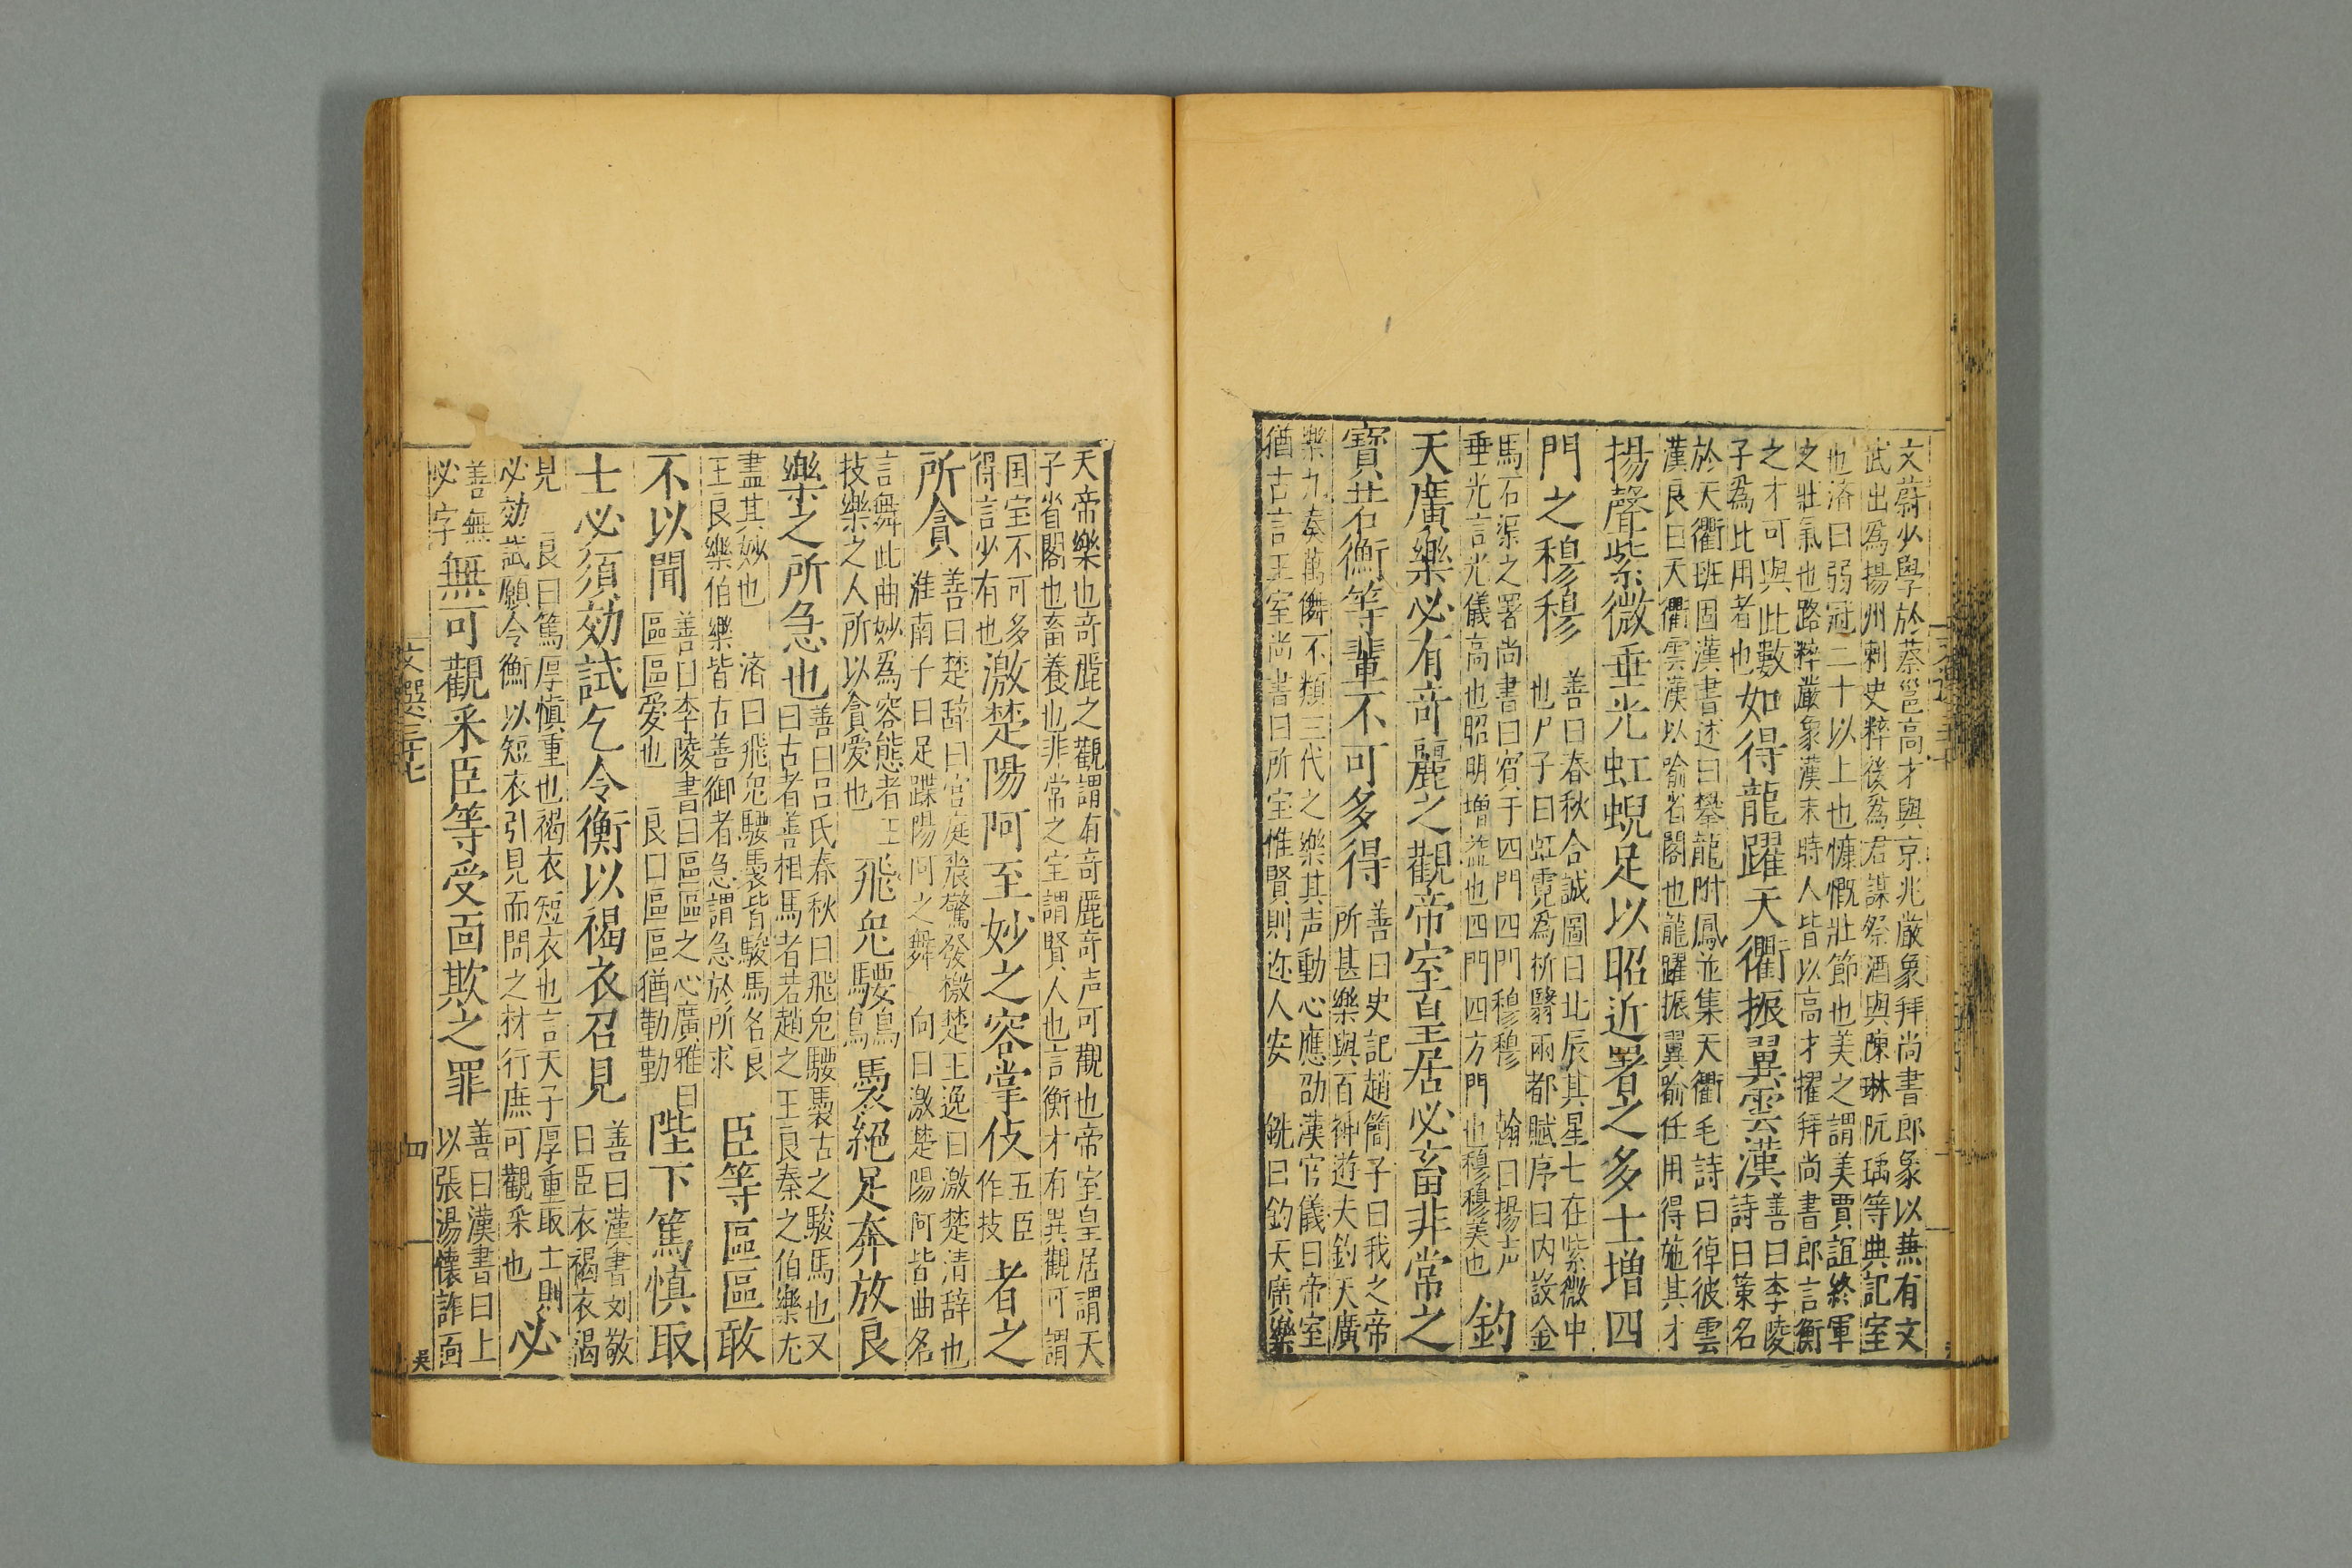 文蔚必學於蔡邕高才與京兆嚴象拜尚書郎象以蕪有文
武出爲揚州刺史粹後爲君謀祭酒與陳琳阮瑀等典記室
也済曰弱冠二十以上也慷慨壯節也美之謂美賈誼終軍
之壯氣也路粹嚴象漢末時人皆以高才擢拜尚書郎言衡
之才可與此數
子爲此用者也
如得龍躍天衢振翼雲漢
善曰李陵
詩曰策名
於天衢班固漢書述曰攀龍附鳳並集天衢毛詩曰倬彼雲
漢良曰天衢雲漢以喻名閣也龍躍振翼喻任用得施其才
揚聲紫微垂光虹蜺足以昭近署之多士增四
門之穆穆
善曰春秋合誠圖曰北辰其星七在紫微中
也尸子曰虹霓爲析翳兩都賦序曰内設金
馬石渠之署尚書曰賓于四門四門穆穆 翰曰揚声
垂光言光儀高也昭明增益也四門四方門也穆穆美也
鈞
天廣樂必有奇麗之觀帝室皇居必畜非常之
寶若衡等輩不可多得
善曰史記趙簡子曰我之帝
所甚樂與百神遊夫鈞天廣
樂九奏萬儛不類三代之樂其声動心應劭漢官儀曰帝室
猶古言王室尚書曰所宝惟賢則迩人安 銑曰鈞天廣樂
天帝樂也奇麗之觀謂有奇麗奇声可觀也帝室皇居謂天
子省閣也畜養也非常之宝謂賢人也言衡才有異觀可謂
国宝不可多
得言必有也
激楚陽阿至妙之容掌伎
五臣
作技
者之
所貪
善曰楚辞曰宮庭震驚發激楚王逸曰激楚清辞也
淮南子曰足蹀陽阿之舞 向曰激楚陽阿皆曲名
言舞此曲妙爲容態者王
技樂之人所以貪愛也
飛兔騕褭絕足奔放良
樂之所急也
善曰吕氏春秋曰飛兔騕褭古之駿馬也又
曰古者善相馬者若趙之王良秦之伯樂尤
盡其妙也 済曰飛兔騕褭皆駿馬名良
王良樂伯樂皆古善御者急謂急於所求
臣等區區敢
不以聞
善曰李陵書曰區區之心廣雅曰
區區愛也 良曰區區猶勤勤
陛下篤慎取
士必須効試乞令衡以褐衣召見
善曰漢書刘敬
曰臣衣褐衣褐
見 良曰篤厚慎重也褐衣短衣也言天子厚重取士則
必効試願令衡以短衣引見而問之材行庶可觀采也
必
善無
必字
無可觀采臣等受面欺之罪
善曰漢書曰上
以張湯懷詐面
文選三十七
四
吳